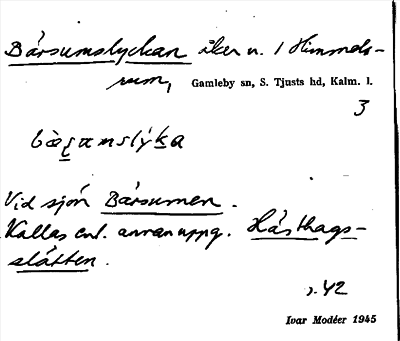 Bårsumslyckan åker n. 1 Himmels-
rum, Gamleby sn, S. Tjusts hd, Kalm. l.
3
Vid sjön Bårsumen.
Kallas enl. annan uppg. Hästhags-
slätten.
s. 42
Ivar Modéer 1945